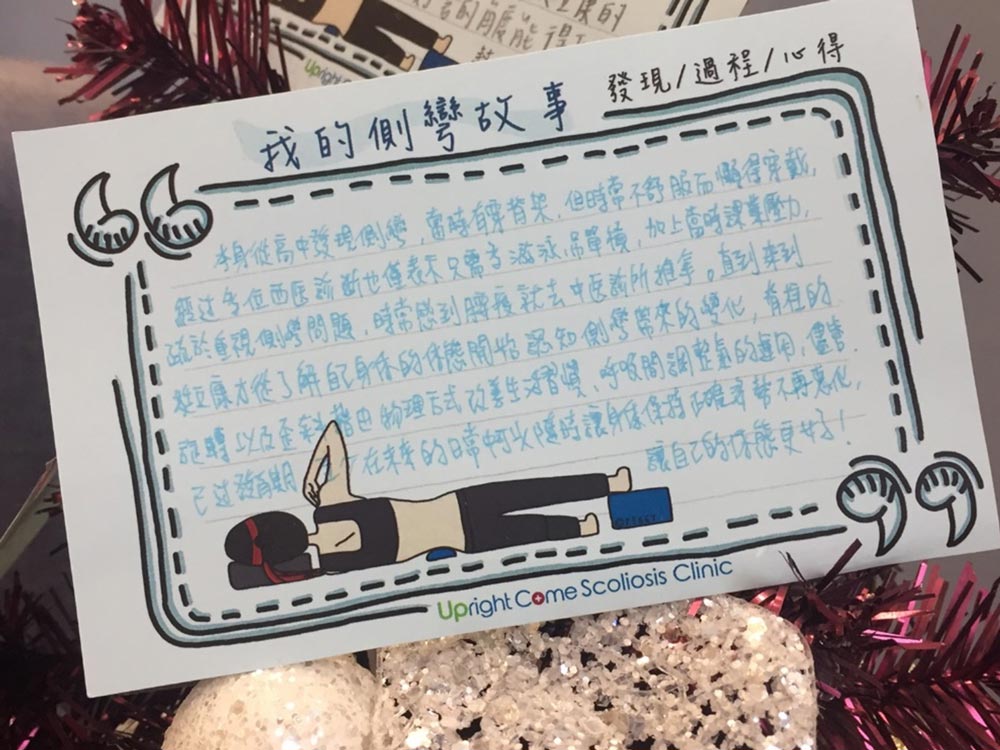 我的側彎故事
發現/過程/心得
本身從高中發現側彎,當時有穿背架,但時常不舒服而懶得穿戴,
經过多位西医診斷也僅表示只需多游泳、吊單槓,加上當時課業壓力,
疏於重視側彎問題,時常感到腰痠就去中医診所推拿。直到來到
康才從了解自己身体的体態開始認知側彎帶來的變化,脊柱的
旋轉以及歪斜,藉由物理方式改善生活習慣、呼吸間調整氣的運用,儘管
已过發育期 在未來的日常中可以隨時讓身体保持正確姿勢不再惡化,
讓自己的体態更好!
Upright Come Scoliosis Clinic
Upright